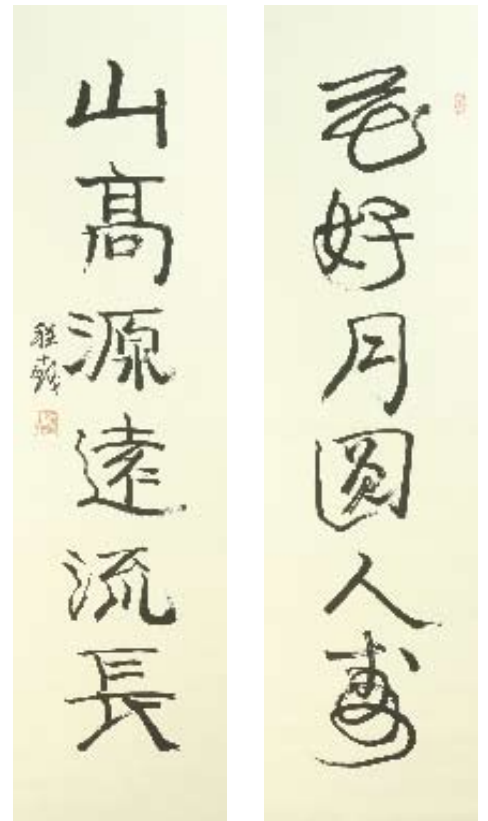 花好月圆人寿
山高源遠流長